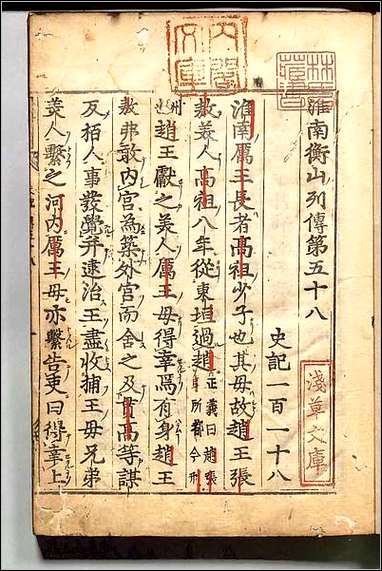 內閣文庫
林氏藏書
淺草文庫
淮南衡山列傳第五十八
史記一百一十八
淮南厲王長者高祖少子也其母故趙王張
敖美人高祖八年從東垣過趙正義曰趙張所都今邢
州也趙王獻之美人厲王母得幸焉有身趙王
敖弗敢內宮為築外宮而舍之及貫高等謀
反栢人事發覺并逮治王盡收捕王母兄弟
美人繫之河內厲王母亦繫告吏曰得幸上